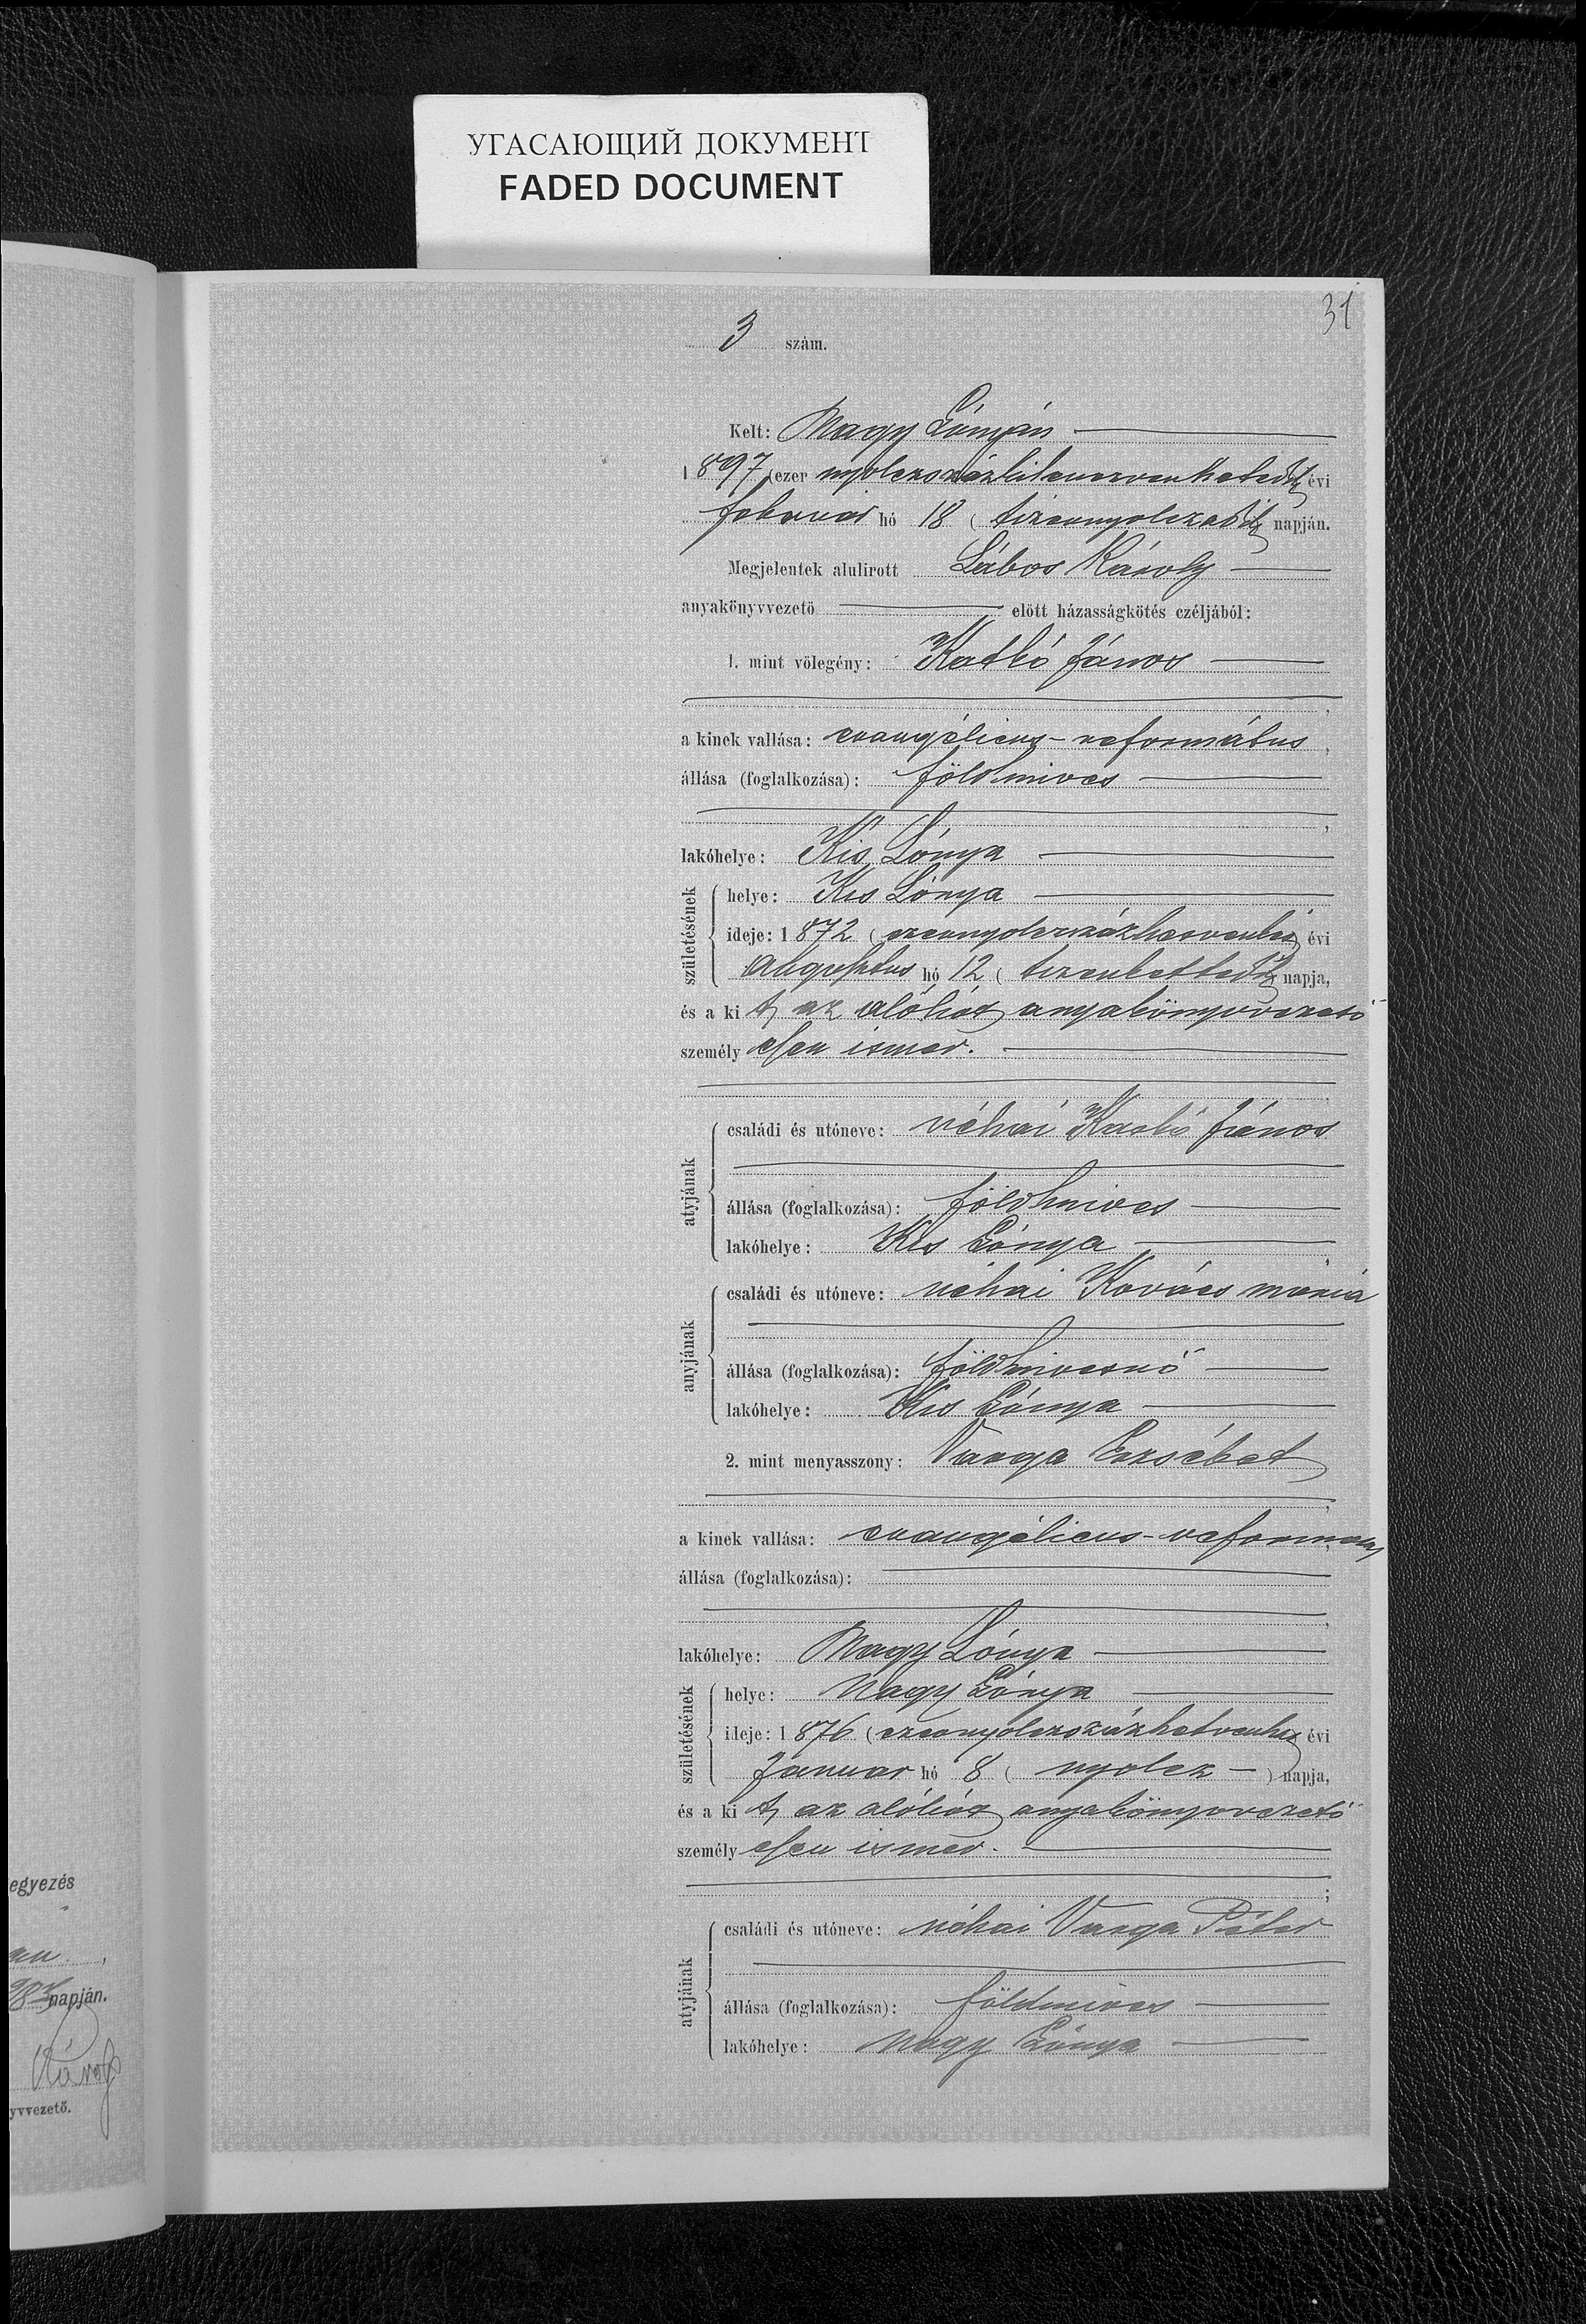 УГАСАЮЩИЙ ДОКУМЕНТ
FADED DOCUMENT
31
3 szám.
Kelt: Nagy Lónyán
1897 (ezer nyolczszázkilenczvenhetedik) évi
február hó 18 (tizennyolczadik) napján.
Megjelentek alulirott Lábos Károly
anyakönyvvezető előtt házasságkötés czéljából:
1. mint vőlegény: Katkó János
a kinek vallása: evangélicus-református,
állása (foglalkozása): földmives
lakóhelye: Kis Lónya
születésének
helye: Kis Lónya
ideje: 1872 (ezernyolczszázhetvenket) évi
Augusztus hó 12 (tizenkettedik) napja,
és a kit az alólirt anyakönyvvezető
személyesen ismer.
atyjának
családi és utóneve: néhai Katkó János
állása (foglalkozása): földmives
lakóhelye: Kis Lónya
anyjának
családi és utóneve: néhai Kovács mária
állása (foglalkozása): földmivesnő
lakóhelye: Kis Lónya
2. mint menyasszony: Varga Erzsébet
a kinek vallása: evangélicus-reformatus,
állása (foglalkozása):
lakóhelye: Nagy Lónya
születésének
helye: Nagy Lónya
ideje: 1876 (ezernyolczszázhetvenhat) évi
Januar hó 8 (nyolcz) napja,
és a kit az alólirt anyakönyvvezető
személyesen ismer.
atyjának
családi és utóneve: néhai Varga Péter
állása (foglalkozása): földmives
lakóhelye: Nagy Lónya
egyezés
napján.
Károly
yvvezető.